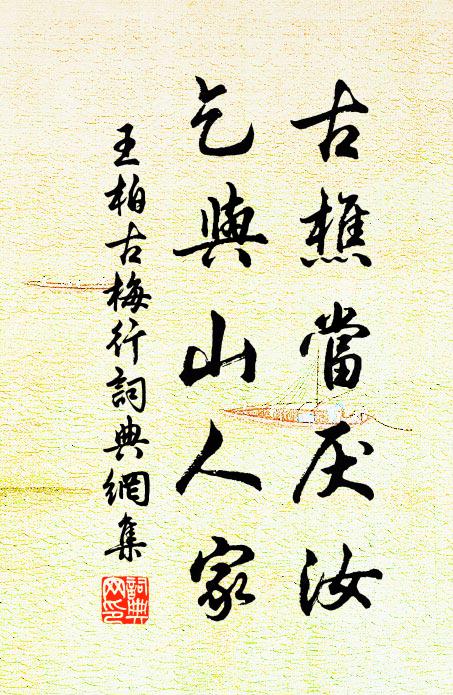 古樵當厌汝
乞與山人家
王柏古梅行詞典網集
詞典
网印